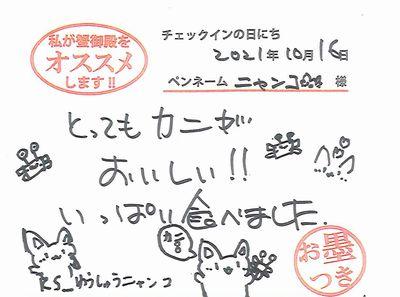 私が蟹御殿を
オススメ
します!!
チェックインの日にち
2021年10月16日
ペンネーム ニャンコ 様
とってもカニが
おいしい!!
いっぱい食べました.
カニ
RS_ゆうしゅうニャンコ
お墨
つき